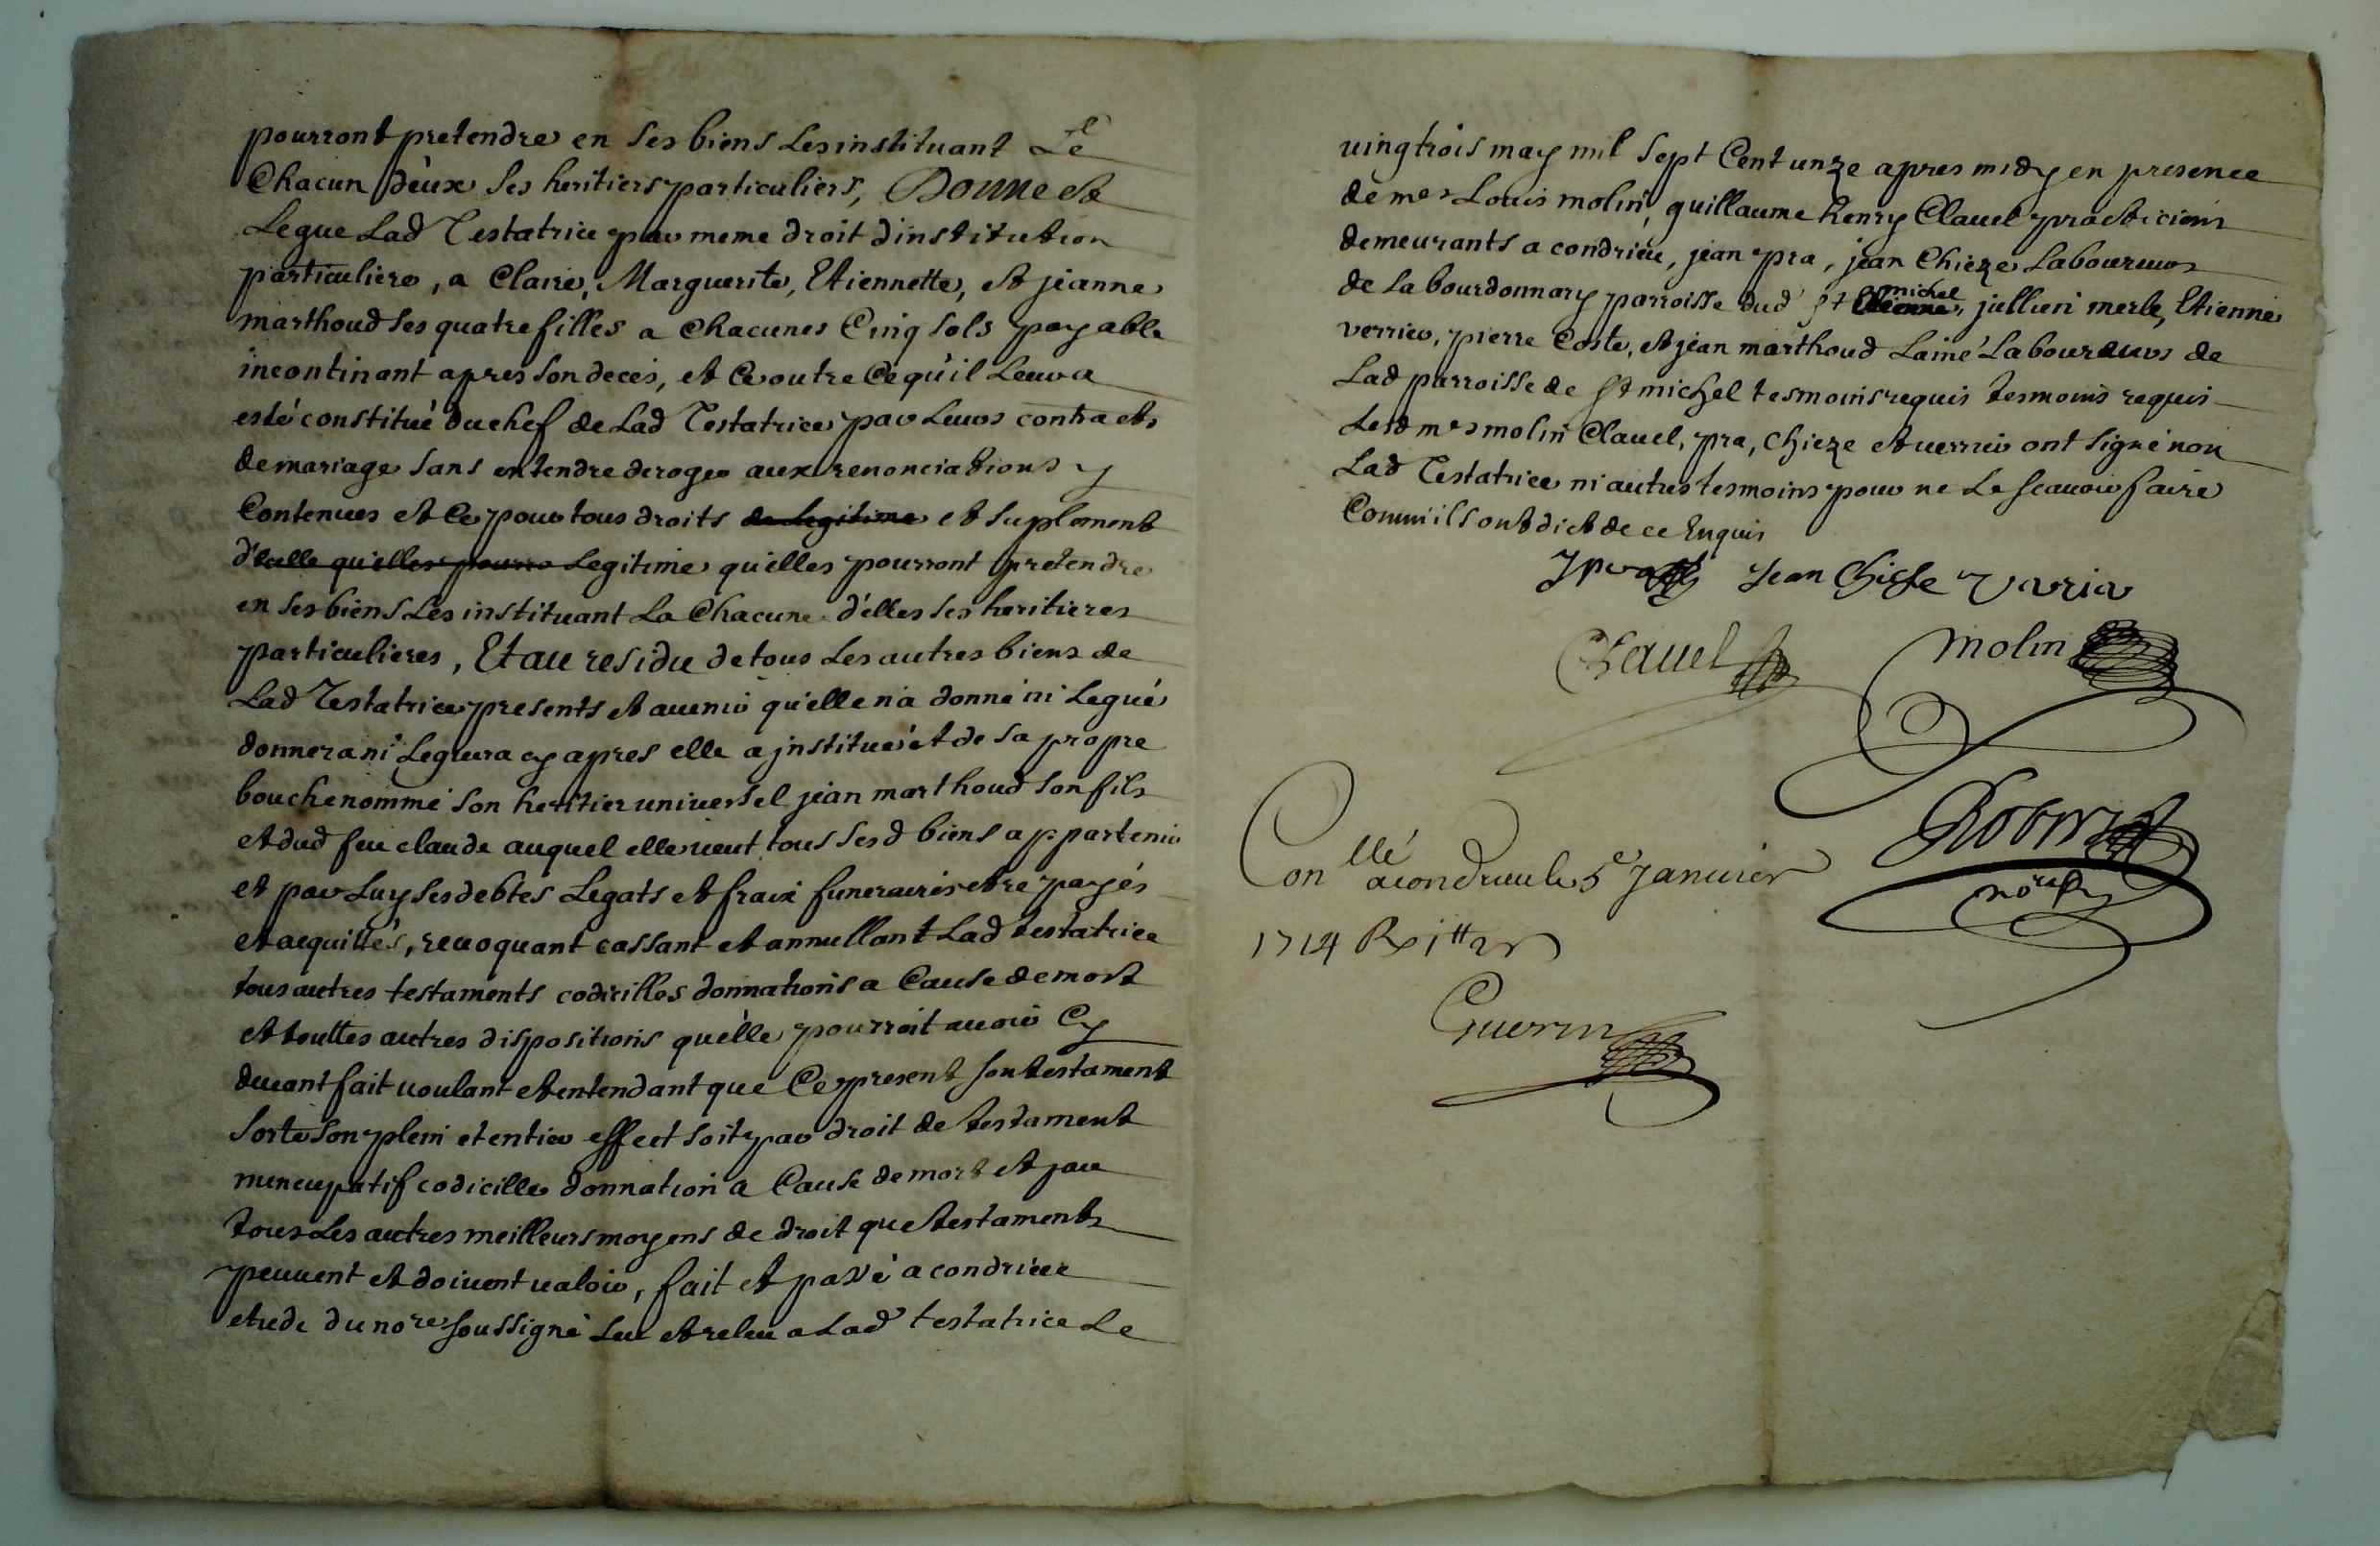 pourront pretendre en ses biens les instituant Le
Chacun d'eux ses heritiers particuliers, Donne et
Legue Lad Testatrice par meme droit dinstitution
particuliere, a Claire, Marguerite, Etiennette, et jeanne
marthoud ses quatre filles a Chacunes Cinq sols payable
incontinant apres son deces, et Ce outre Ce qu'il Leur a
esté constitué du chef de Lad Testatrice par Leurs contracts
de mariage sans entendre deroger aux renonciations y
Contenues et Ce pour tous droits de Legitime et suplement
d'icelle qu'elles pourro Legitime qu'elles pourront pretendre
en ses biens Les instituant La Chacune d'elles ses heritieres
particulieres, Et au residu de tous Les autres biens de
Lad Testatrice presents et auenir qu'elle n'a donné ni Legué
donnera ni Leguera cy apres elle a jnstitué et de sa propre
bouche nommé son heritier uniuersel jean marthoud son fils
et dud feu claude auquel elle ueut tous sesd biens appartenir
et par Luy ses debtes Legats et fraix funeraires etre payés
et acquittés, reuoquant cassant et annullant Lad testatrice
tous autres testaments codicilles donnations a Cause de mort
et touttes autres dispositions qu'elle pourroit auoir Cy
deuant fait uoulant et entendant que Ce present son testament
sorte son plein et entier effect soit par droit de testament
nuncupatif codicille donnation a Cause de mort et par
tous Les autres meilleurs moyens de droit que testaments
peuuent et doiuent ualoir, fait et passé a condrieu
etude du no.re soussigné Leu et releu a Lad testatrice Le
uingtrois may mil sept Cent unze apres midy en presence
de mes Louis molin, guillaume henry Clauel practiciens
demeurants a condrieu, jean pra, jean Chieze Laboureurs
de La bourdonnary parroisse dud st michel, jullien merle, Etienne
verrier, pierre Coste, et jean marthoud Lainé Laboureurs de
Lad parroisse de st michel tesmoins requis tesmoins requis
Lesd mes molin Clauel, pra, Chieze et uerrier ont signé non
Lad Testatrice ni autres tesmoins pour ne Le scauoir faire
Comm'ils ont dict de ce Enquis
J pra Jean Chiße Varier
Clauel Molin
Robert
no.re
Con.llé a condrieu le 5e Januier
1714 R
Guerin